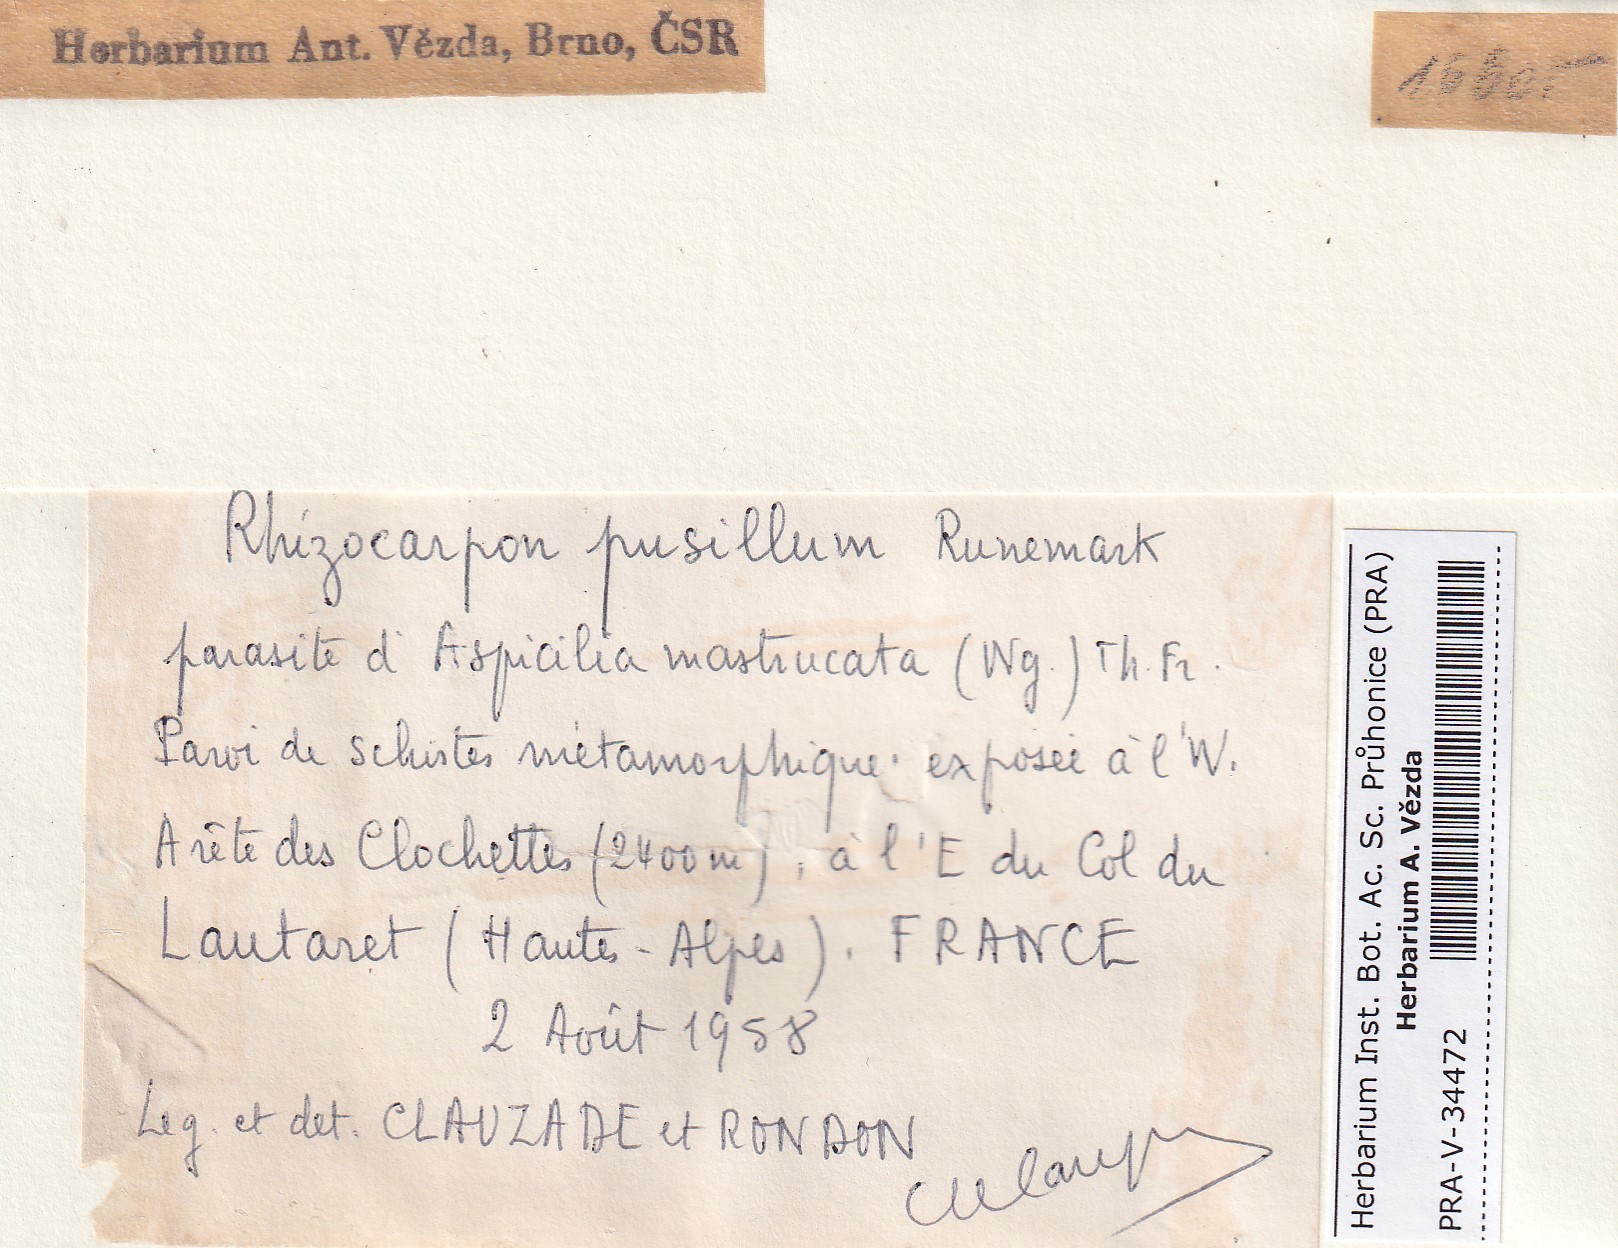 Herbarium Ant. Vězda, Brno, ČSR
Rhizocarpon pusillum Runemark
parasite d'Aspicilia mastrucata (Wg.) Th. Fr.
Paroi de schistes métamorphique exposée à l'W.
Arête des Clochettes (2400 m), à l'E du Col du
Lautaret (Hautes-Alpes). FRANCE
2 Août 1958
Leg. et det. CLAUZADE et RONDON
Herbarium Inst. Bot. Ac. Sc. Průhonice (PRA)
Herbarium A. Vězda
PRA-V-34472